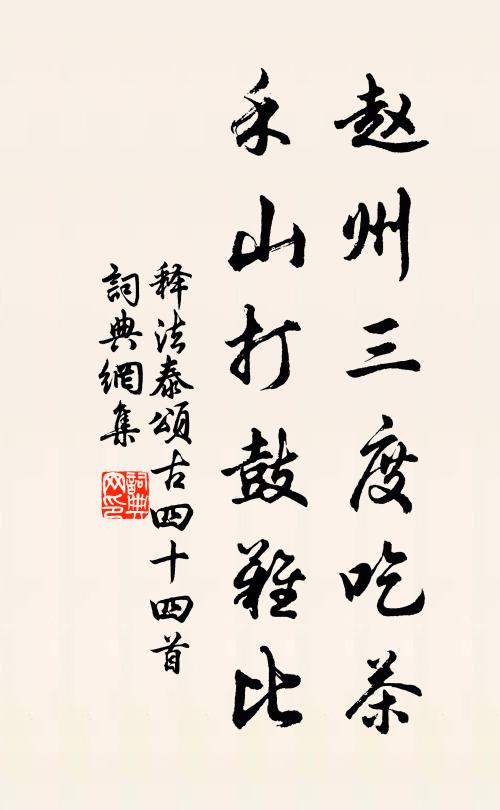 赵州三度吃茶
禾山打鼓難比
释法泰頌古四十四首
詞典網集
詞典网印